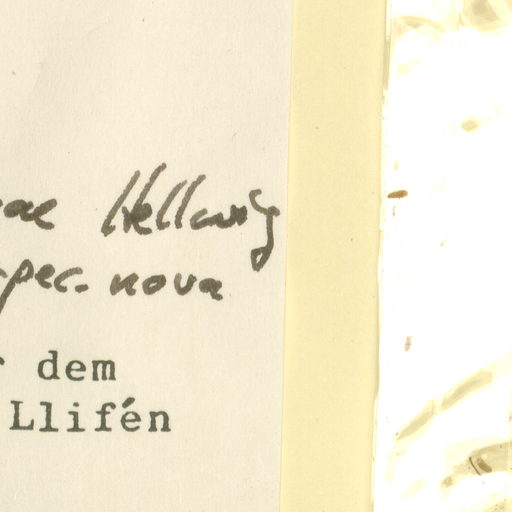 Hellwig
spec. nova
dem
Llifén